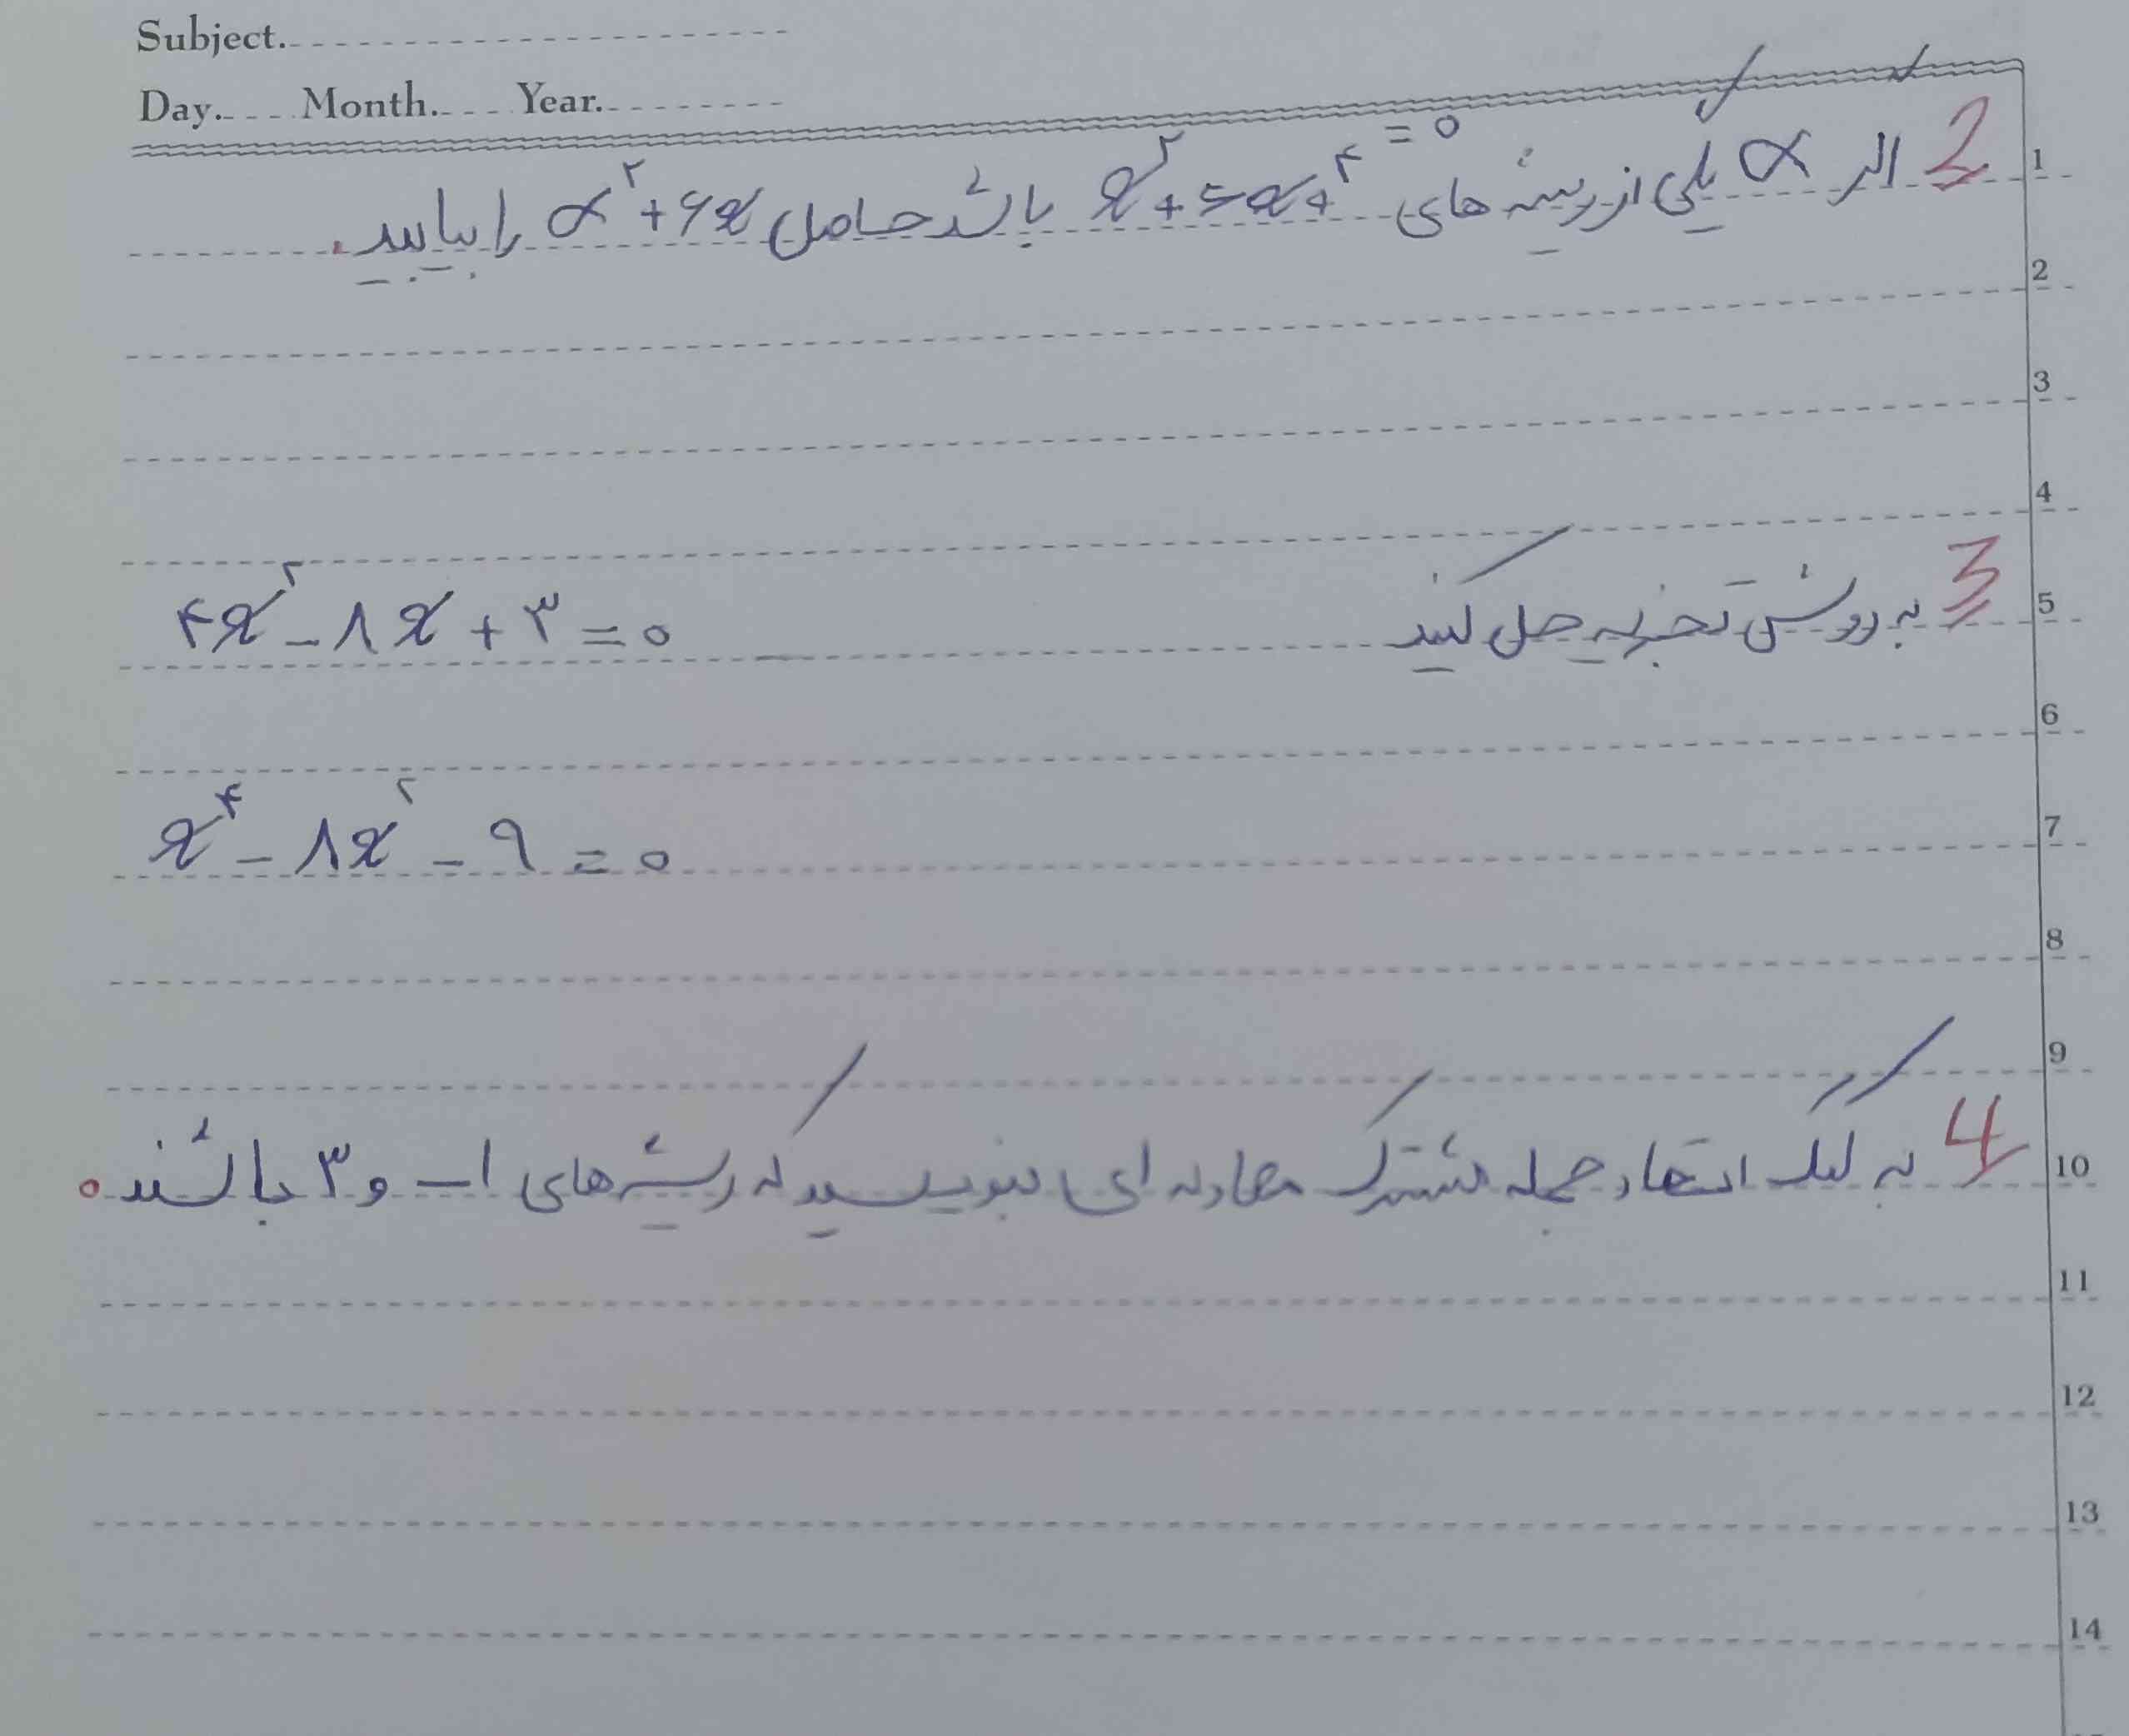 Subject.
Day. Month. Year.
2 اگر α یکی از ریشه های x²+5x+۴=0 باشد حاصل α²+6x را بیابید.
1
2
3
4
3 به روش تجزیه حل کنید ۴x²-۸x+۳=0
5
6
x⁴-۸x²-۹=0
7
8
9
4 به کمک اتحاد جمله مشترک معادله ای بنویسید که ریشه های ۱- و ۳ باشند.
10
11
12
13
14